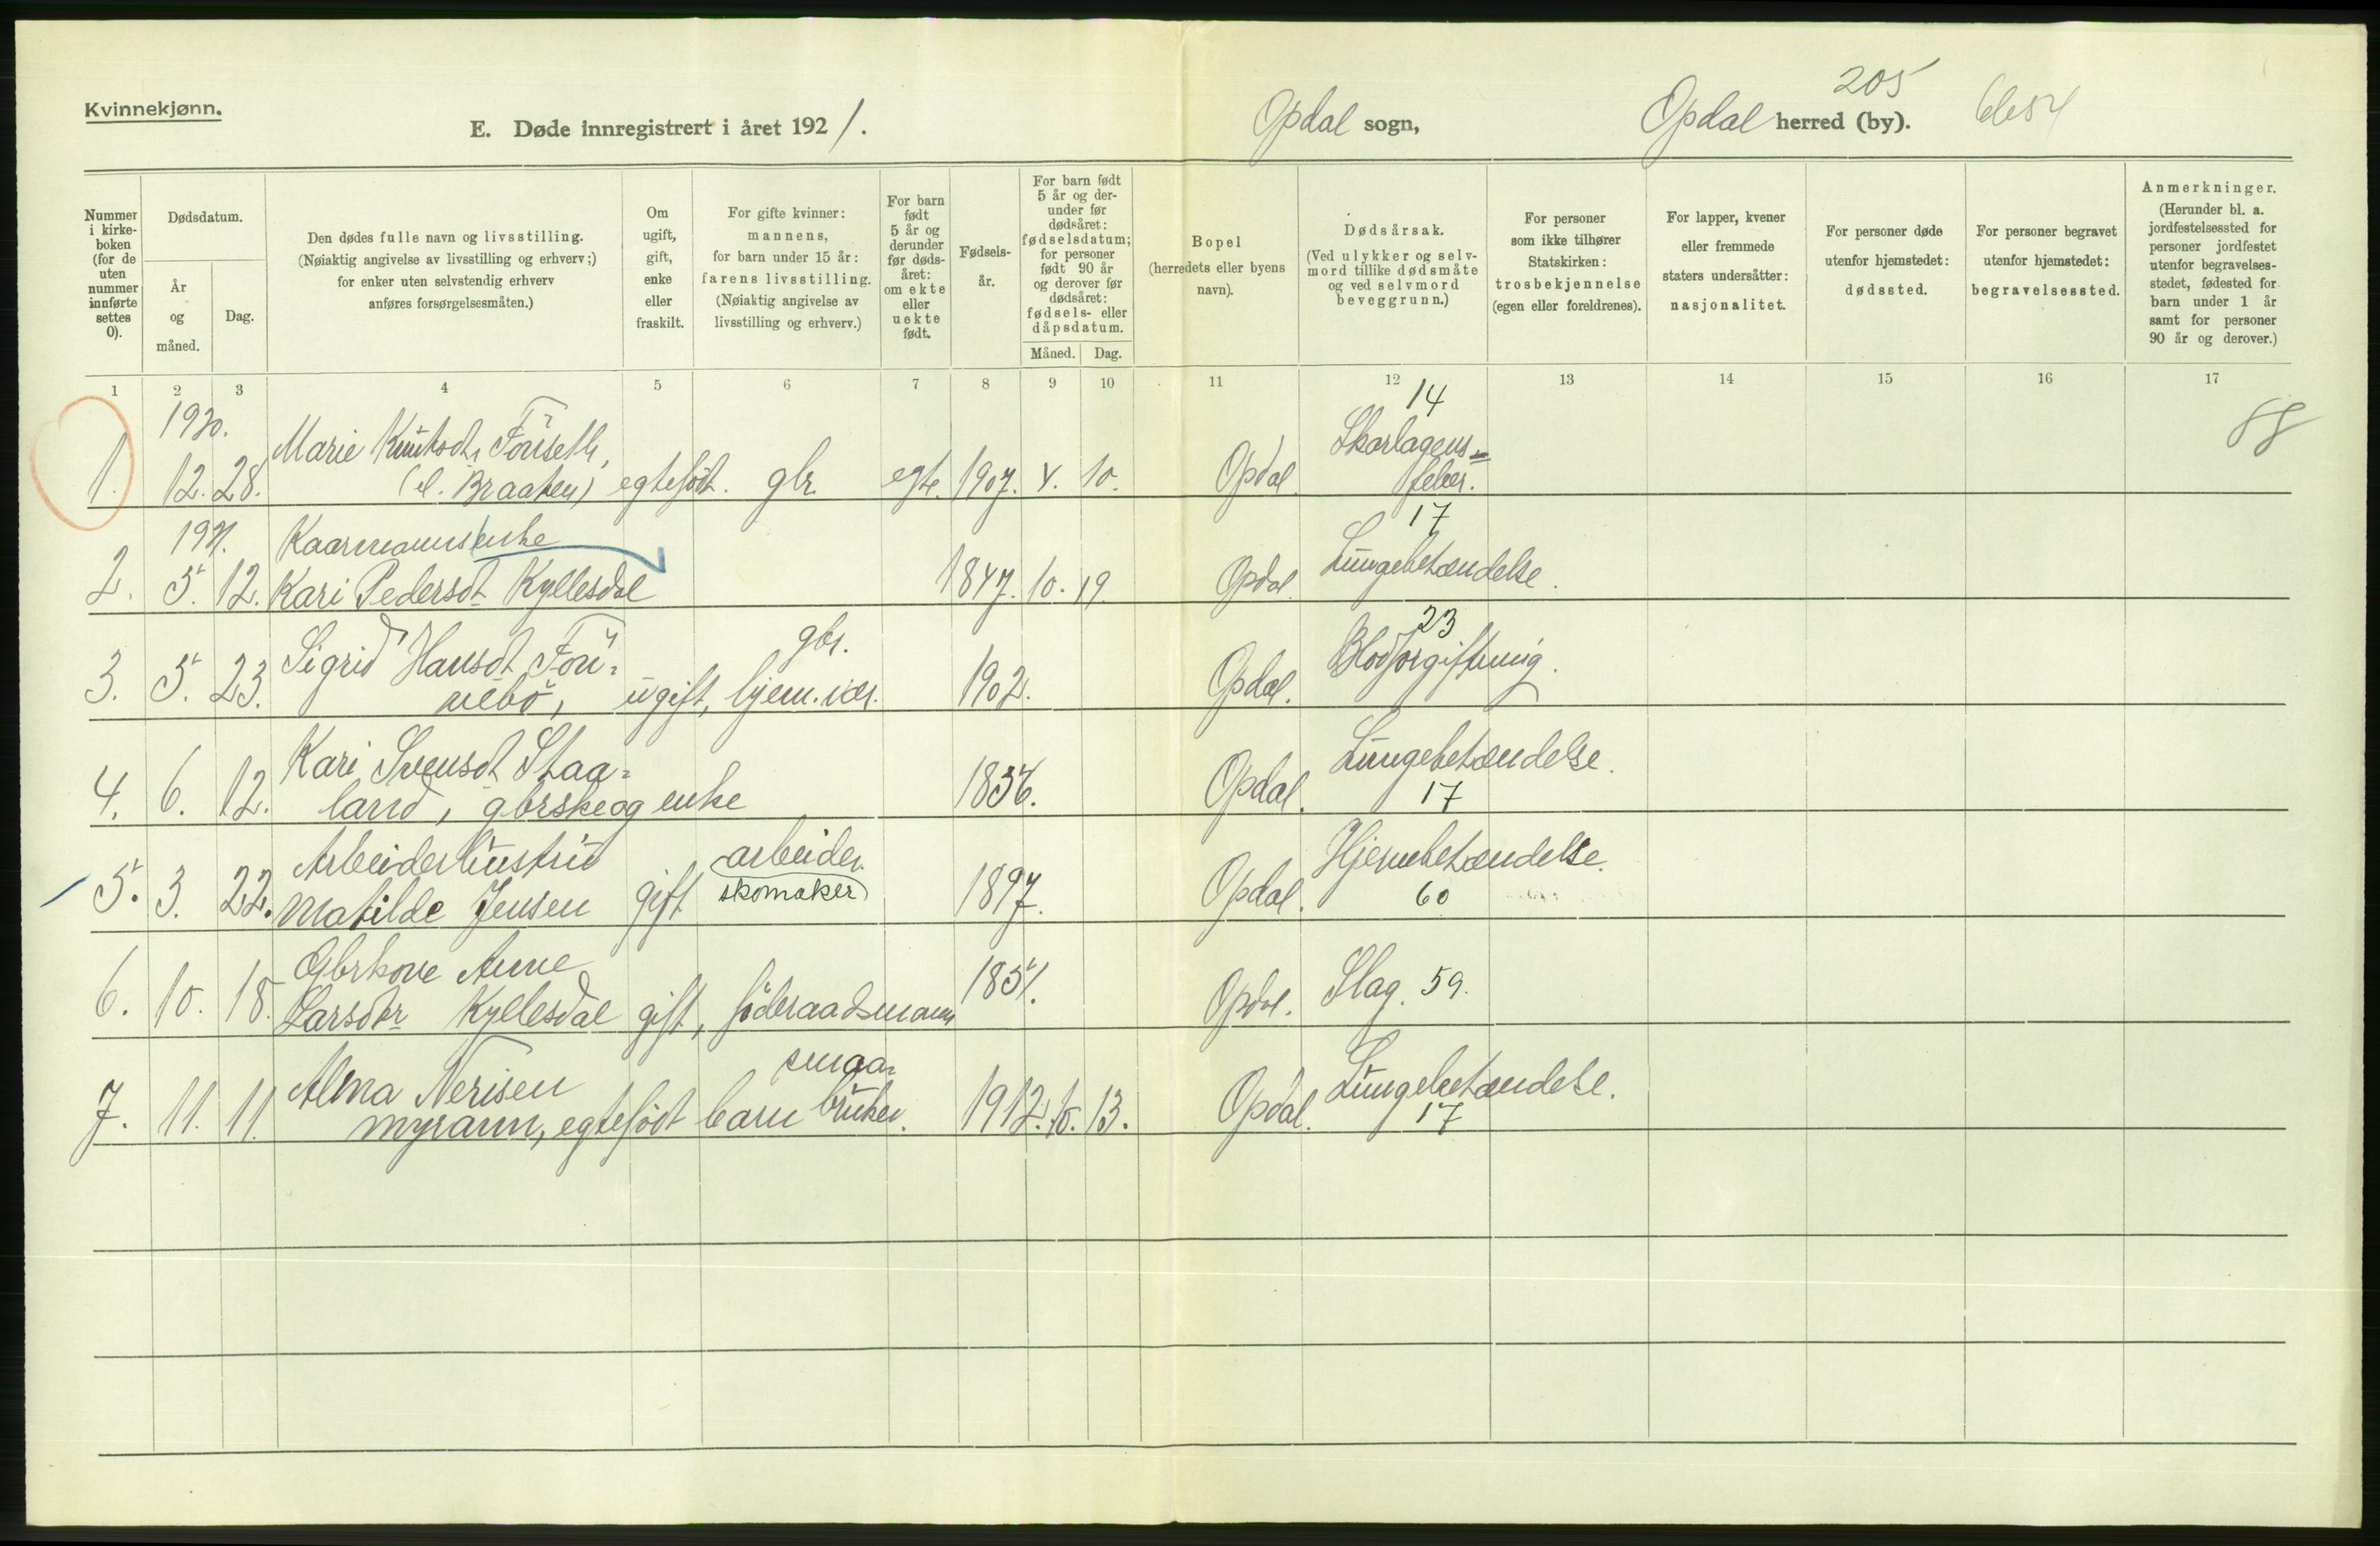 205
Kvinnekjønn.
E. Døde innregistrert i året 1921. Opdal sogn, Opdal herred (by).
Nummer i kirke-boken (for de uten nummer innførte settes 0).
Dødsdatum.
År og måned.
Dag.
Den dødes fulle navn og livsstilling.
(Nøiaktig angivelse av livsstilling og erhverv;)
for enker uten selvstendig erhverv
anføres forsørgelsesmåten.)
Om ugift, gift, enke eller fraskilt.
For gifte kvinner: mannens, for barn under 15 år: farens livsstilling. (Nøiaktig angivelse av livsstilling og erhverv.)
For barn født 5 år og derunder før døds-året: om ekte eller uekte født.
Fødsels-år.
For barn født 5 år og der-under før dødsåret: fødselsdatum; for personer født 90 år og derover før dødsåret: fødsels- eller dåpsdatum.
Måned. Dag.
Bopel (herredets eller byens navn).
Dødsårsak. (Ved ulykker og selv-mord tillike dødsmåte og ved selvmord beveggrunn.)
For personer som ikke tilhører Statskirken: trosbekjennelse (egen eller foreldrenes).
For lapper, kvener eller fremmede staters undersåtter: nasjonalitet.
For personer døde utenfor hjemstedet: dødssted.
For personer begravet utenfor hjemstedet: begravelsessted.
Anmerkninger. (Herunder bl. a. jordfestelsessted for personer jordfestet utenfor begravelses-stedet, fødested for barn under 1 år samt for personer 90 år og derover.)
1 2 3 4 5 6 7 8 9 10 11 12 13 14 15 16 17
1920. Marie Knutsdtr Fönseth, 14 Skarlagens-
1. 12. 28. (el. Braaten) egtefödt. gbr. egte. 1907. 4. 10. Opdal. feber.
1921. Kaarmannsenke 17
2. 5. 12. Kari Pedersdt Kyllesdal 1847. 10. 19. Opdal. Lungebetændelse.
Sigrid Hansdt Fön- gbr. 23
3. 5. 23. nebö, ugift, hjem. vær. 1902. Opdal. Blodforgiftning.
Kari Svensdt Staa- Lungebetændelse.
4. 6. 12. land, gbrskeog enke Opdal. 17
Arbeiderhustru arbeider. Hjernebetændelse.
5. 3. 22. Matilde Jensen gift skomaker 1897. Opdal. 60
Gbrkone Anne
6. 10. 18. Larsdtr Kyllesdal gift, föderaadsmann 1851. Opdal. Slag. 59.
Alma Nerisen smaa- Lungebetændelse.
7. 11. 11. myrann, egtefödt barn bruker. 1912. 10. 13. Opdal. 17